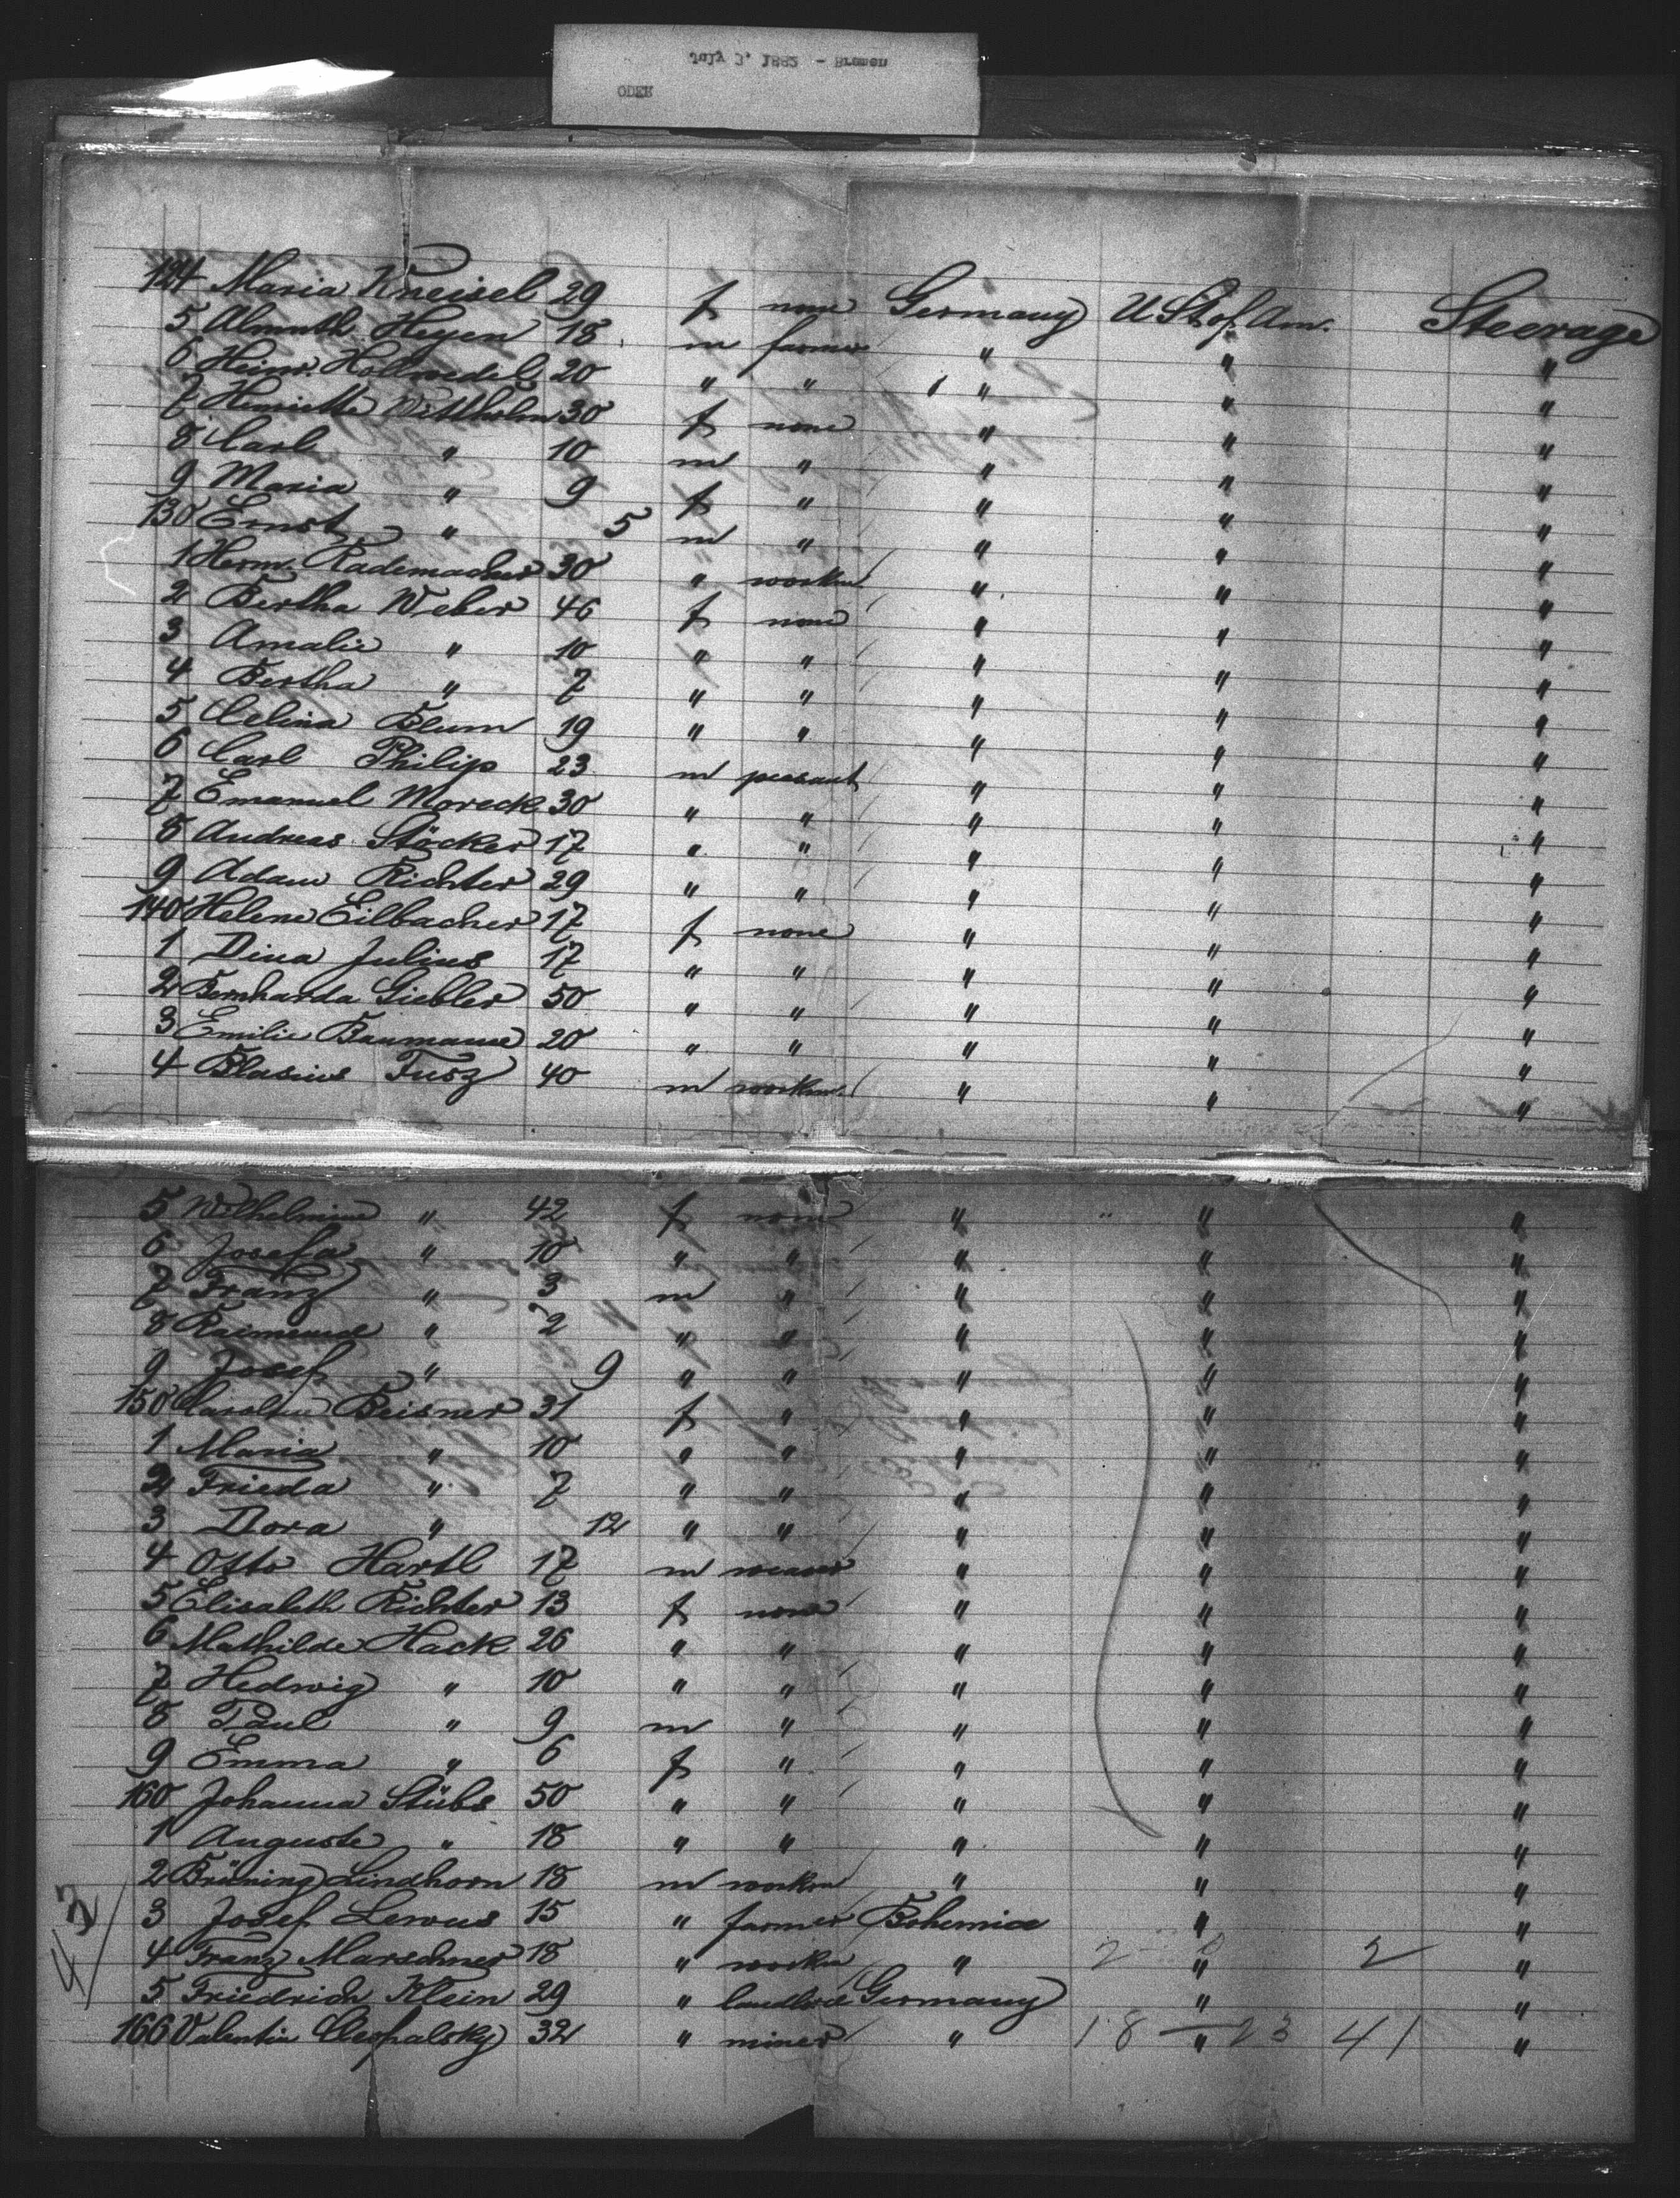 July 3, 1882 - Bremen
ODER
124 Maria Kneisel 29 f none Germany U St. of Am. Steerage
5 Almuth Heyen 18 m farmer " " "
6 Heinr. Hollwedel 20 " " " " "
7 Henriette Wittholm 30 f none " " "
8 Carl " 10 m " " " "
9 Maria " 9 f " " " "
130 Ernst " 5 m " " " "
1 Herm. Rademacher 30 " workm " " "
2 Bertha Weber 46 f none " " "
3 Amalie " 10 " " " " "
4 Bertha " 7 " " " " "
5 Celina Blum 19 " " " " "
6 Carl Philip 23 m peasant " " "
7 Emanuel Moreck 30 " " " " "
8 Andreas Stöcker 17 " " " " "
9 Adam Richter 29 " " " " "
140 Helene Eilbacher 17 f none " " "
1 Dina Julius 17 " " " " "
2 Bernharda Giebler 50 " " " " "
3 Emilie Baumann 20 " " " " "
4 Blasius Fusz 40 m workm. " " "
5 Wilhelmine " 42 f none " " "
6 Josefa " 10 " " " " "
7 Franz " 3 m " " " "
8 Raimund " 2 " " " " "
9 Josef " 9 " " " " "
150 Caroline Beisner 31 f " " " "
1 Maria " 10 " " " " "
2 Frieda " 7 " " " " "
3 Dora " 12 " " " " "
4 Otto Hartl 17 m weaver " " "
5 Elisabeth Richter 13 f none " " "
6 Mathilde Hack 26 " " " " "
7 Hedwig " 10 " " " " "
8 Paul " 9 m " " " "
9 Emma " 6 f " " " "
160 Johanna Stübs 50 " " " " "
1 Auguste " 18 " " " " "
2 Brüning Lindhorn 18 m workm " " "
3 Josef Lewus 15 " farmer Bohemia " "
4 Franz Marschner 18 " workm " " 2 "
5 Friedrich Klein 29 " Germany " "
166 Valentin 32 " miner " 18 - 23 41 "